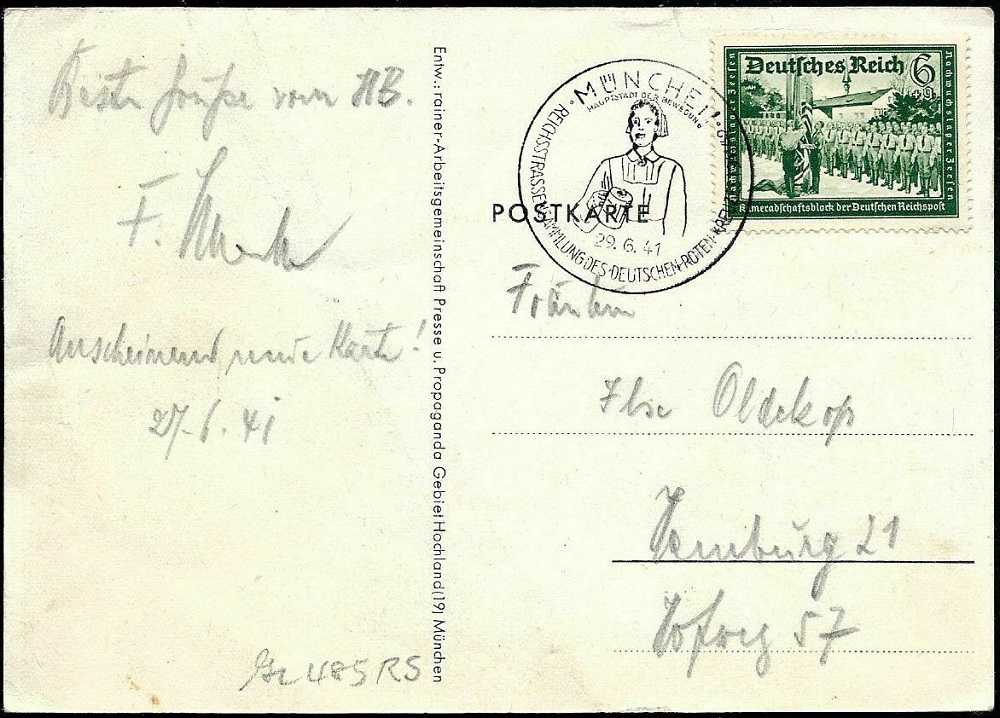 Beste Grüße vom
F.
Anscheinend neue Karte!
27.6.41
485RS
Entw.: rainer-Arbeitsgemeinschaft Presse u. Propaganda Gebiet Hochland (19) München
POSTKARTE
MÜNCHEN
HAUPTSTADT DER BEWEGUNG
REICHSSTRASSENSAMMLUNG DES DEUTSCHEN ROTEN KREUZES
29.6.41
Deutsches Reich 6+9
Nachwuchslager Zeesen
Nachwuchslager Zeesen
Kameradschaftsblock der Deutschen Reichspost
Fräulein
Ilse Oldekop
Hamburg 21
57